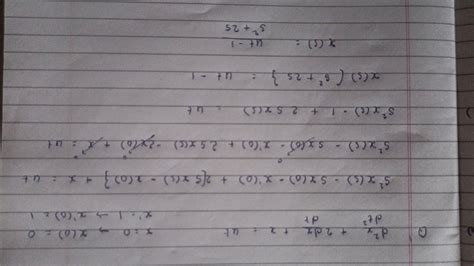 d²x/dt² + 2dx/dt + x = 4t
x=0 → x(0) = 0
x'=1 → x'(0) = 1
s²x(s) - sx(0) - x'(0) + 2{sx(s) - x(0)} + x = 4t
s²x(s) - sx(0) - x'(0) + 2sx(s) - 2x(0) + x = 4t
s²x(s) - 1 + 2sx(s) = 4t
x(s) {s² + 2s} = 4t - 1
x(s) = 4t - 1
s² + 2s